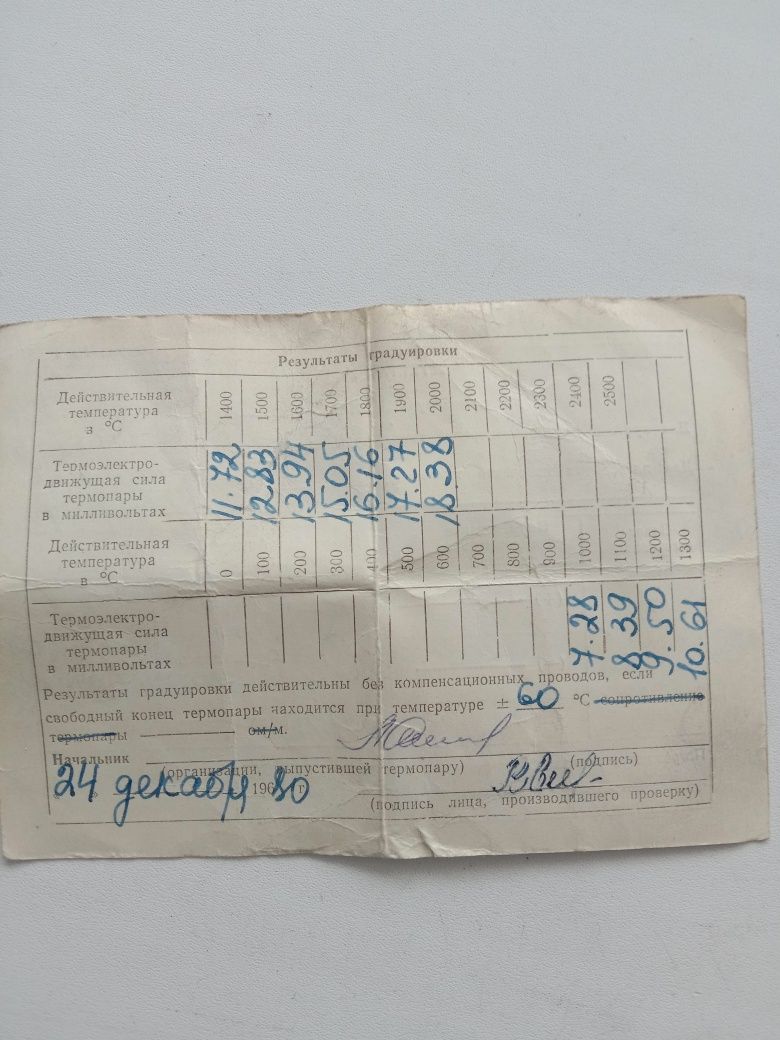 Результаты градуировки
Действительная температура в °С 1400 1500 1600 1700 1800 1900 2000 2100 2200 2300 2400 2500
Термоэлектро-
движущая сила
термопары
в милливольтах 11.72 12.83 13.94 15.05 16.16 17.27 18.38
Действительная
температура
в °С 0 100 200 300 400 500 600 700 800 900 1000 1100 1200 1300
Термоэлектро-
движущая сила
термопары
в милливольтах 7.28 8.39 9.50 10.61
Результаты градуировки действительны без компенсационных проводов, если
свободный конец термопары находится при температуре ± 60 °С сопротивление
термопары ом/м.
Начальник
(организации, выпустившей термопару) (подпись)
24 декабря 196 80 г.
(подпись лица, производившего проверку)